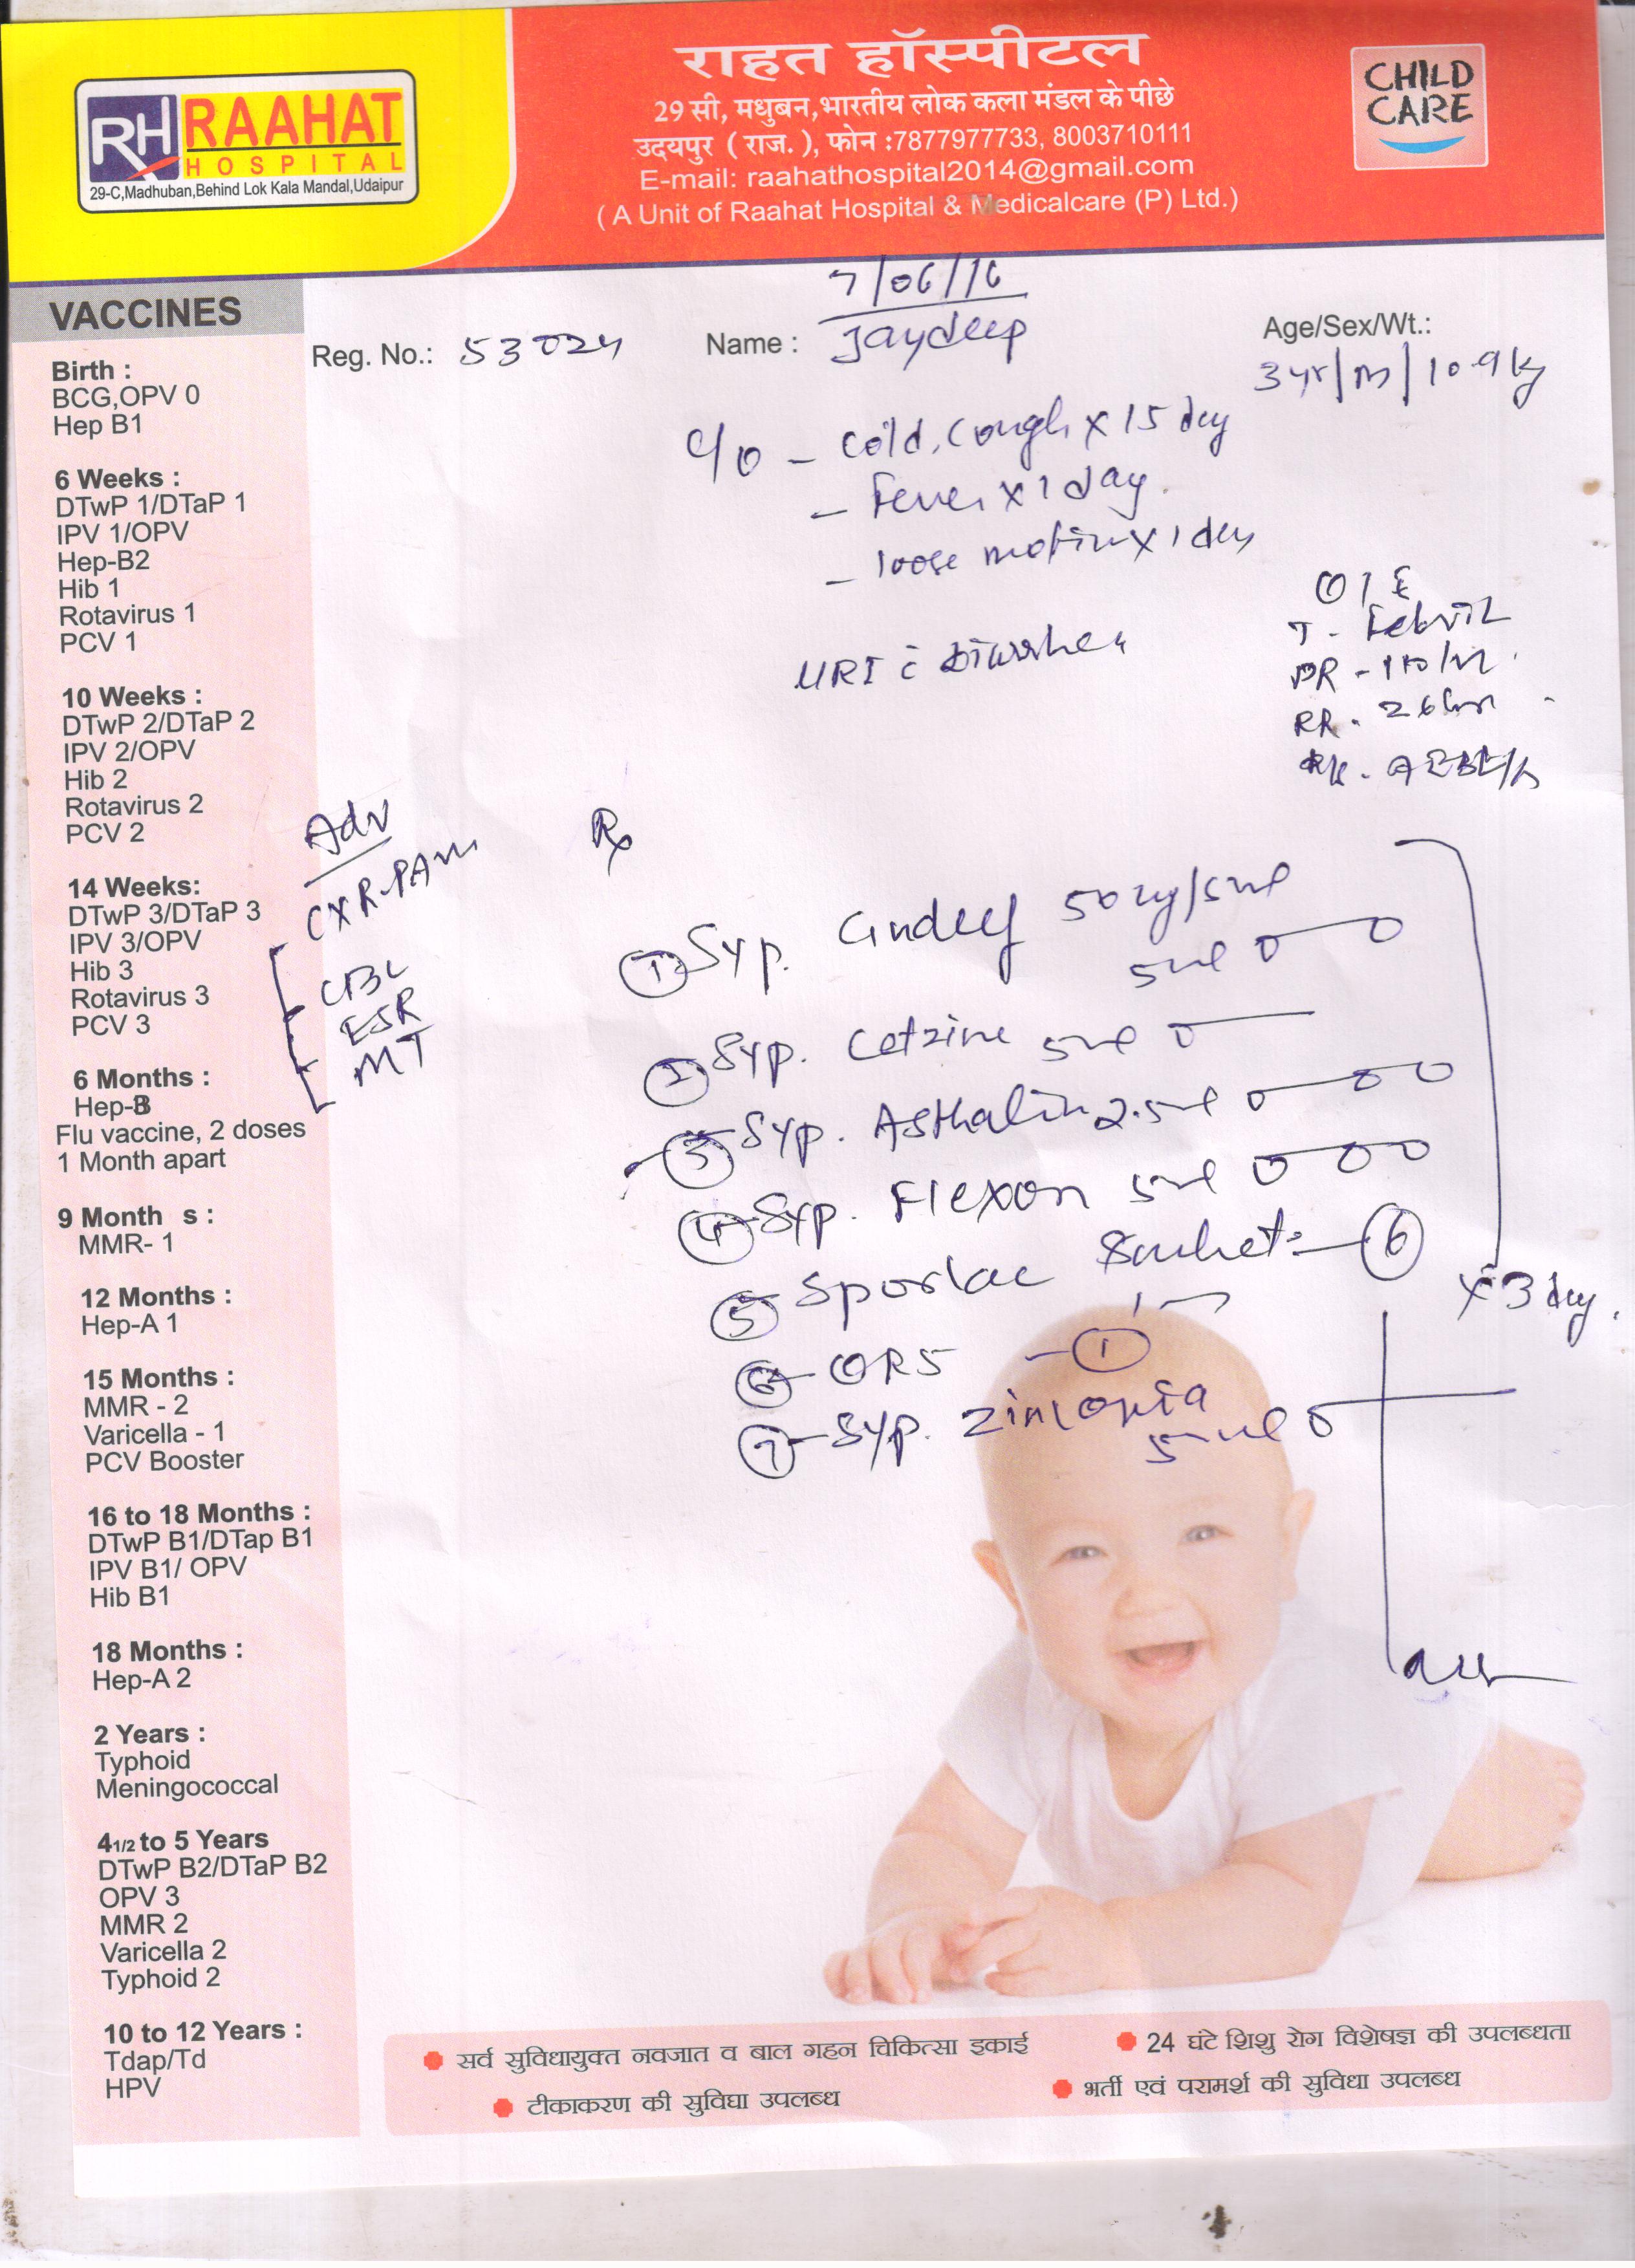 RH RAAHAT
HOSPITAL
29-C,Madhuban,Behind Lok Kala Mandal,Udaipur
राहत हॉस्पीटल
29 सी, मधुबन,भारतीय लोक कला मंडल के पीछे
उदयपुर ( राज. ), फोन :7877977733, 8003710111
E-mail: raahathospital2014@gmail.com
( A Unit of Raahat Hospital & Medicalcare (P) Ltd.)
CHILD
CARE
VACCINES
Birth :
BCG,OPV 0
Hep B1
6 Weeks :
DTwP 1/DTaP 1
IPV 1/OPV
Hep-B2
Hib 1
Rotavirus 1
PCV 1
10 Weeks :
DTwP 2/DTaP 2
IPV 2/OPV
Hib 2
Rotavirus 2
PCV 2
14 Weeks:
DTwP 3/DTaP 3
IPV 3/OPV
Hib 3
Rotavirus 3
PCV 3
6 Months :
Hep-B3
Flu vaccine, 2 doses
1 Month apart
9 Month s :
MMR- 1
12 Months :
Hep-A 1
15 Months :
MMR - 2
Varicella - 1
PCV Booster
16 to 18 Months :
DTwP B1/DTap B1
IPV B1/ OPV
Hib B1
18 Months :
Hep-A 2
2 Years :
Typhoid
Meningococcal
4 1/2 to 5 Years
DTwP B2/DTaP B2
OPV 3
MMR 2
Varicella 2
Typhoid 2
10 to 12 Years :
Tdap/Td
HPV
7/06/16
Reg. No.: 53024 Name : Jaydeep
Age/Sex/Wt.:
3yr/m/10.9kg
c/o - cold, cough x 15 day
- Fever x 1 day.
- loose motion x 1 day
URI c Diarrhea
O/E
T - Febrile
PR -
RR - 26/m
Adv
CXR-PA
CBC
ESR
MT
Rx
1 Syp. 50mg/5ml
5ml 0 — 0
2 Syp. Cetzine 5ml 0 —
3 Syp. Asthalin 2.5ml 0 — 0 0
4 Syp. Flexon 5ml 0 0 0
5 Sporlac Sachet - 6
x 3 day.
6 ORS - 1
7 Syp. Zinconia
5ml 0 —
सर्व सुविधायुक्त नवजात व बाल गहन चिकित्सा इकाई
24 घंटे शिशु रोग विशेषज्ञ की उपलब्धता
टीकाकरण की सुविधा उपलब्ध
भर्ती एवं परामर्श की सुविधा उपलब्ध